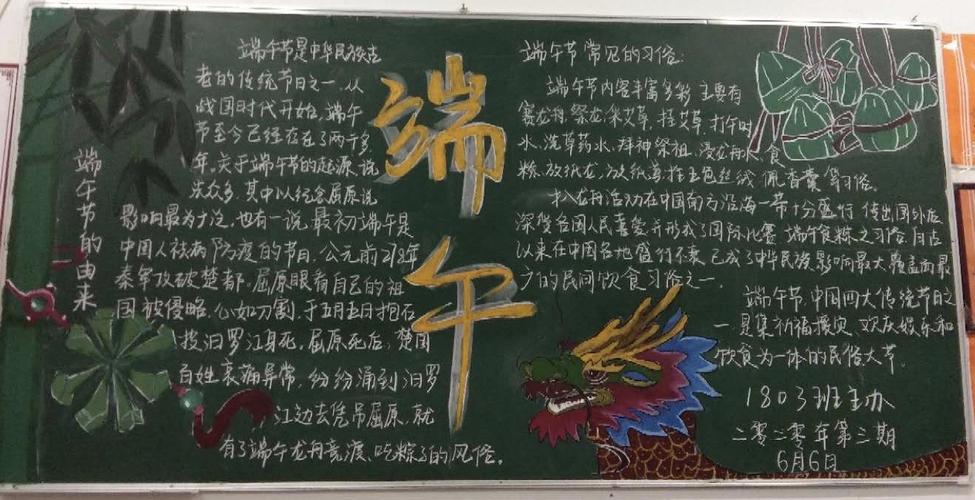 端午节的由来
端午节是中华民族古
老的传统节日之一。从
战国时代开始,端午
节至今已经存在了两千多
年。关于端午节的起源,说
法众多,其中以纪念屈原说
影响最为广泛。也有一说,最初端午是
中国人祛病防疫的节日,公元前278年
秦军攻破楚都。屈原眼看自己的祖
国被侵略,心如刀割,于五月五日抱石
投汨罗江身死。屈原死后,楚国
百姓哀痛异常,纷纷涌到汨罗
江边去凭吊屈原,就
有了端午龙舟竞渡、吃粽子的风俗。
端午
端午节常见的习俗:
端午节内容丰富多彩 主要有
赛龙舟,祭龙,采艾草,挂艾草,打午时
水、洗草药水、拜神祭祖、浸龙舟水、食
粽、放纸龙、放纸鸢、拴五色丝线、佩香囊等习俗。
扒龙舟活动在中国南方沿海一带十分盛行 传出国外后
深受各国人民喜爱并形成了国际比赛,端午食粽之习俗,自古
以来在中国各地盛行不衰,已成了中华民族影响最大、覆盖面最
广的民间饮食习俗之一
端午节,中国四大传统节日之
一,是集祈福攘灾、欢庆娱乐和
饮食为一体的民俗大节。
1803班主办
二零二零年第三期
6月6日